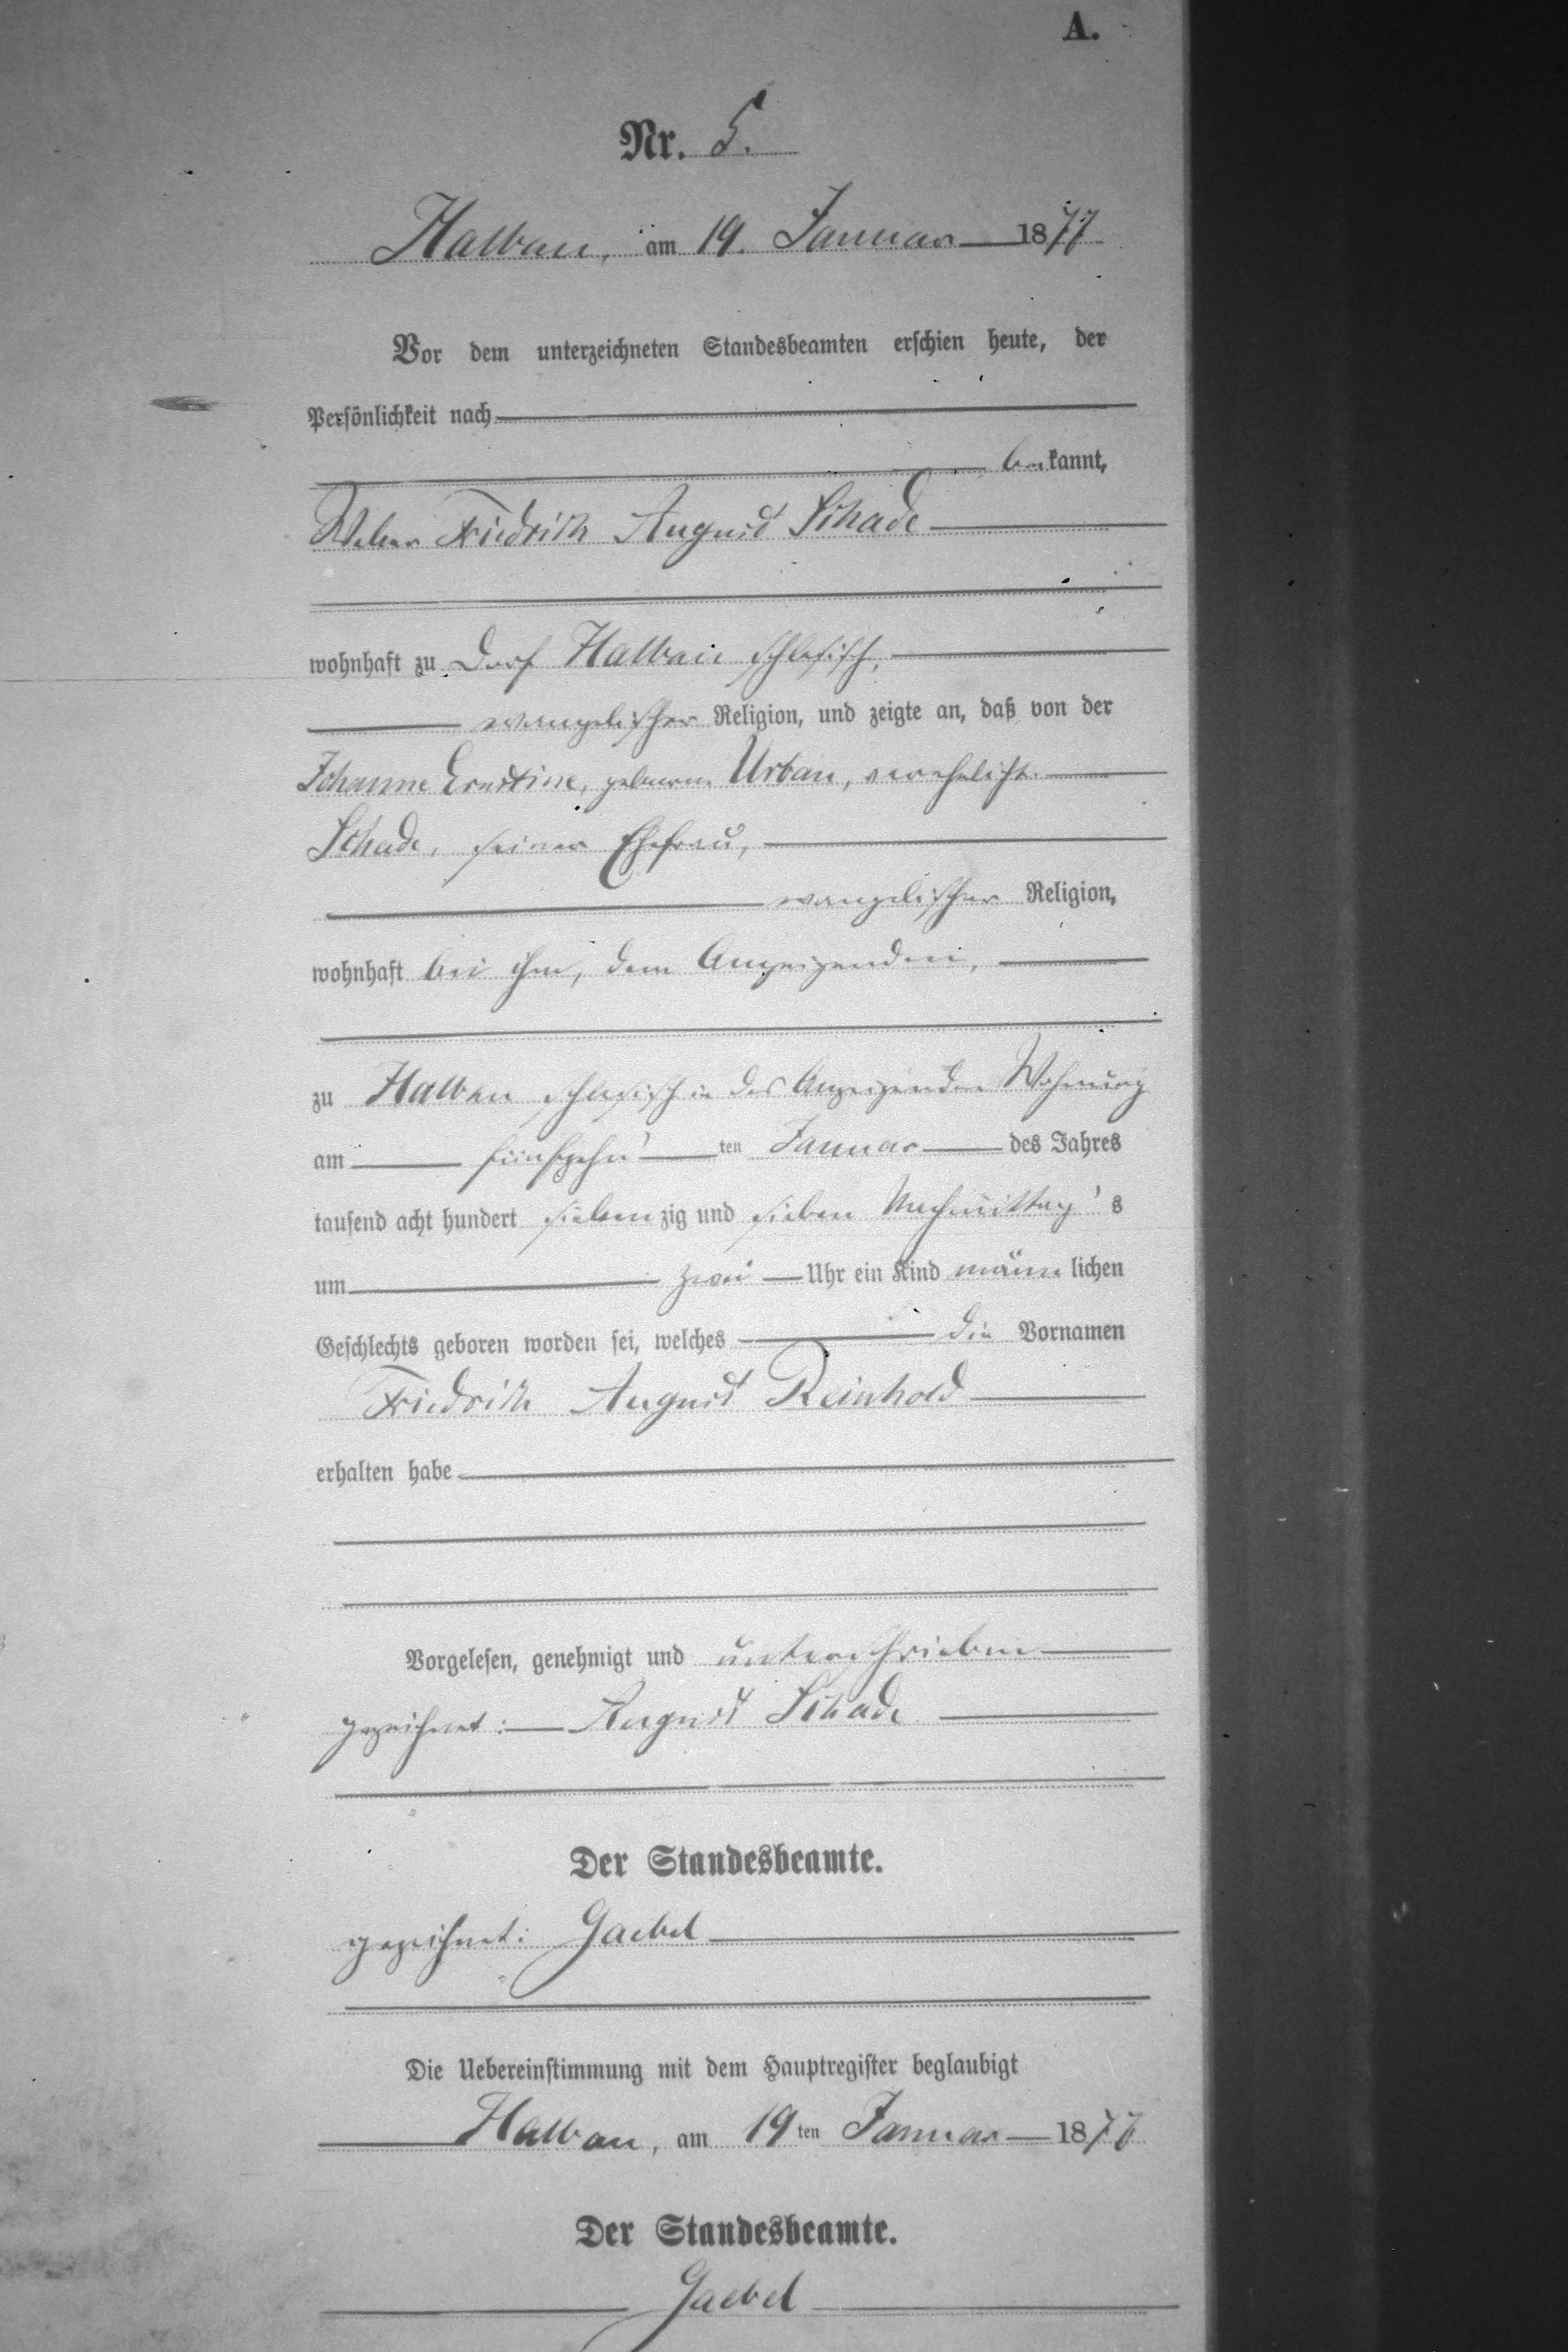 A.
Nr. 5.
Halbau, am 19. Januar 1877
Vor dem unterzeichneten Standesbeamten erschien heute, der
Persönlichkeit nach
bekannt,
Weber Friedrich August Schade
wohnhaft zu Dorf Halbau schlesisch,
evangelischer Religion, und zeigte an, daß von der
Johanne Ernestine, geborne Urban, verehelicht.
Schade, seiner Ehefrau,
evangelischer Religion,
wohnhaft bei ihm, dem Anzeigenden,
zu Halbau schlesisch in des Anzeigenden Wohnung
am fünfzehnten Januar des Jahres
tausend acht hundert siebenzig und sieben Nachmittags
um zwei Uhr ein Kind männlichen
Geschlechts geboren worden sei, welches die Vornamen
Friedrich August Reinhold
erhalten habe
Vorgelesen, genehmigt und unterschrieben
gezeichnet: August Schade
Der Standesbeamte.
gezeichnet: Gaebel
Die Uebereinstimmung mit dem Hauptregister beglaubigt
Halbau, am 19ten Januar 1877
Der Standesbeamte.
Gaebel